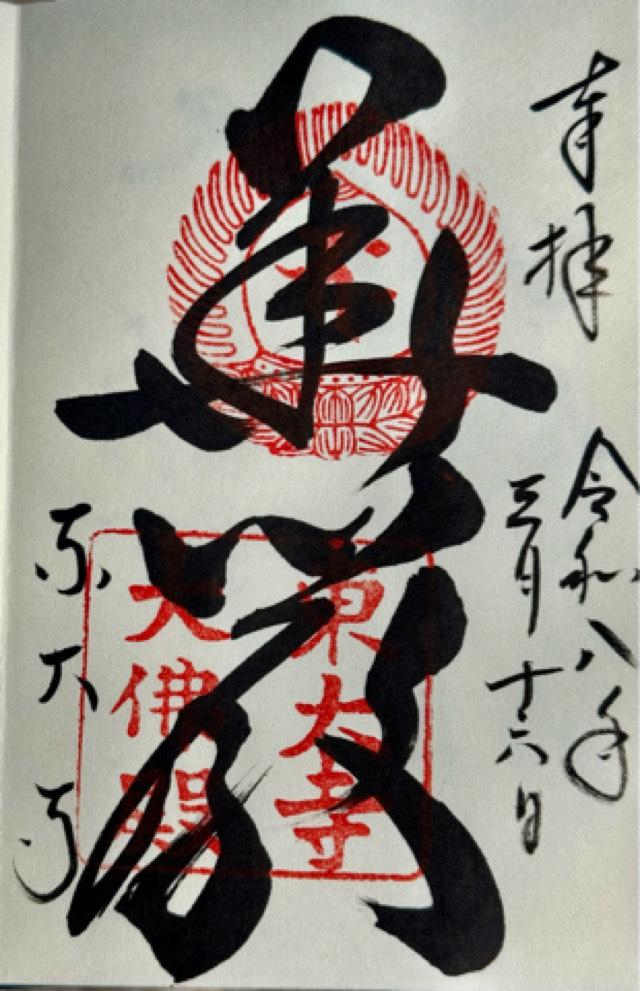 奉拝
令和八年
三月十六日
華厳
東大寺
大佛殿
東大寺